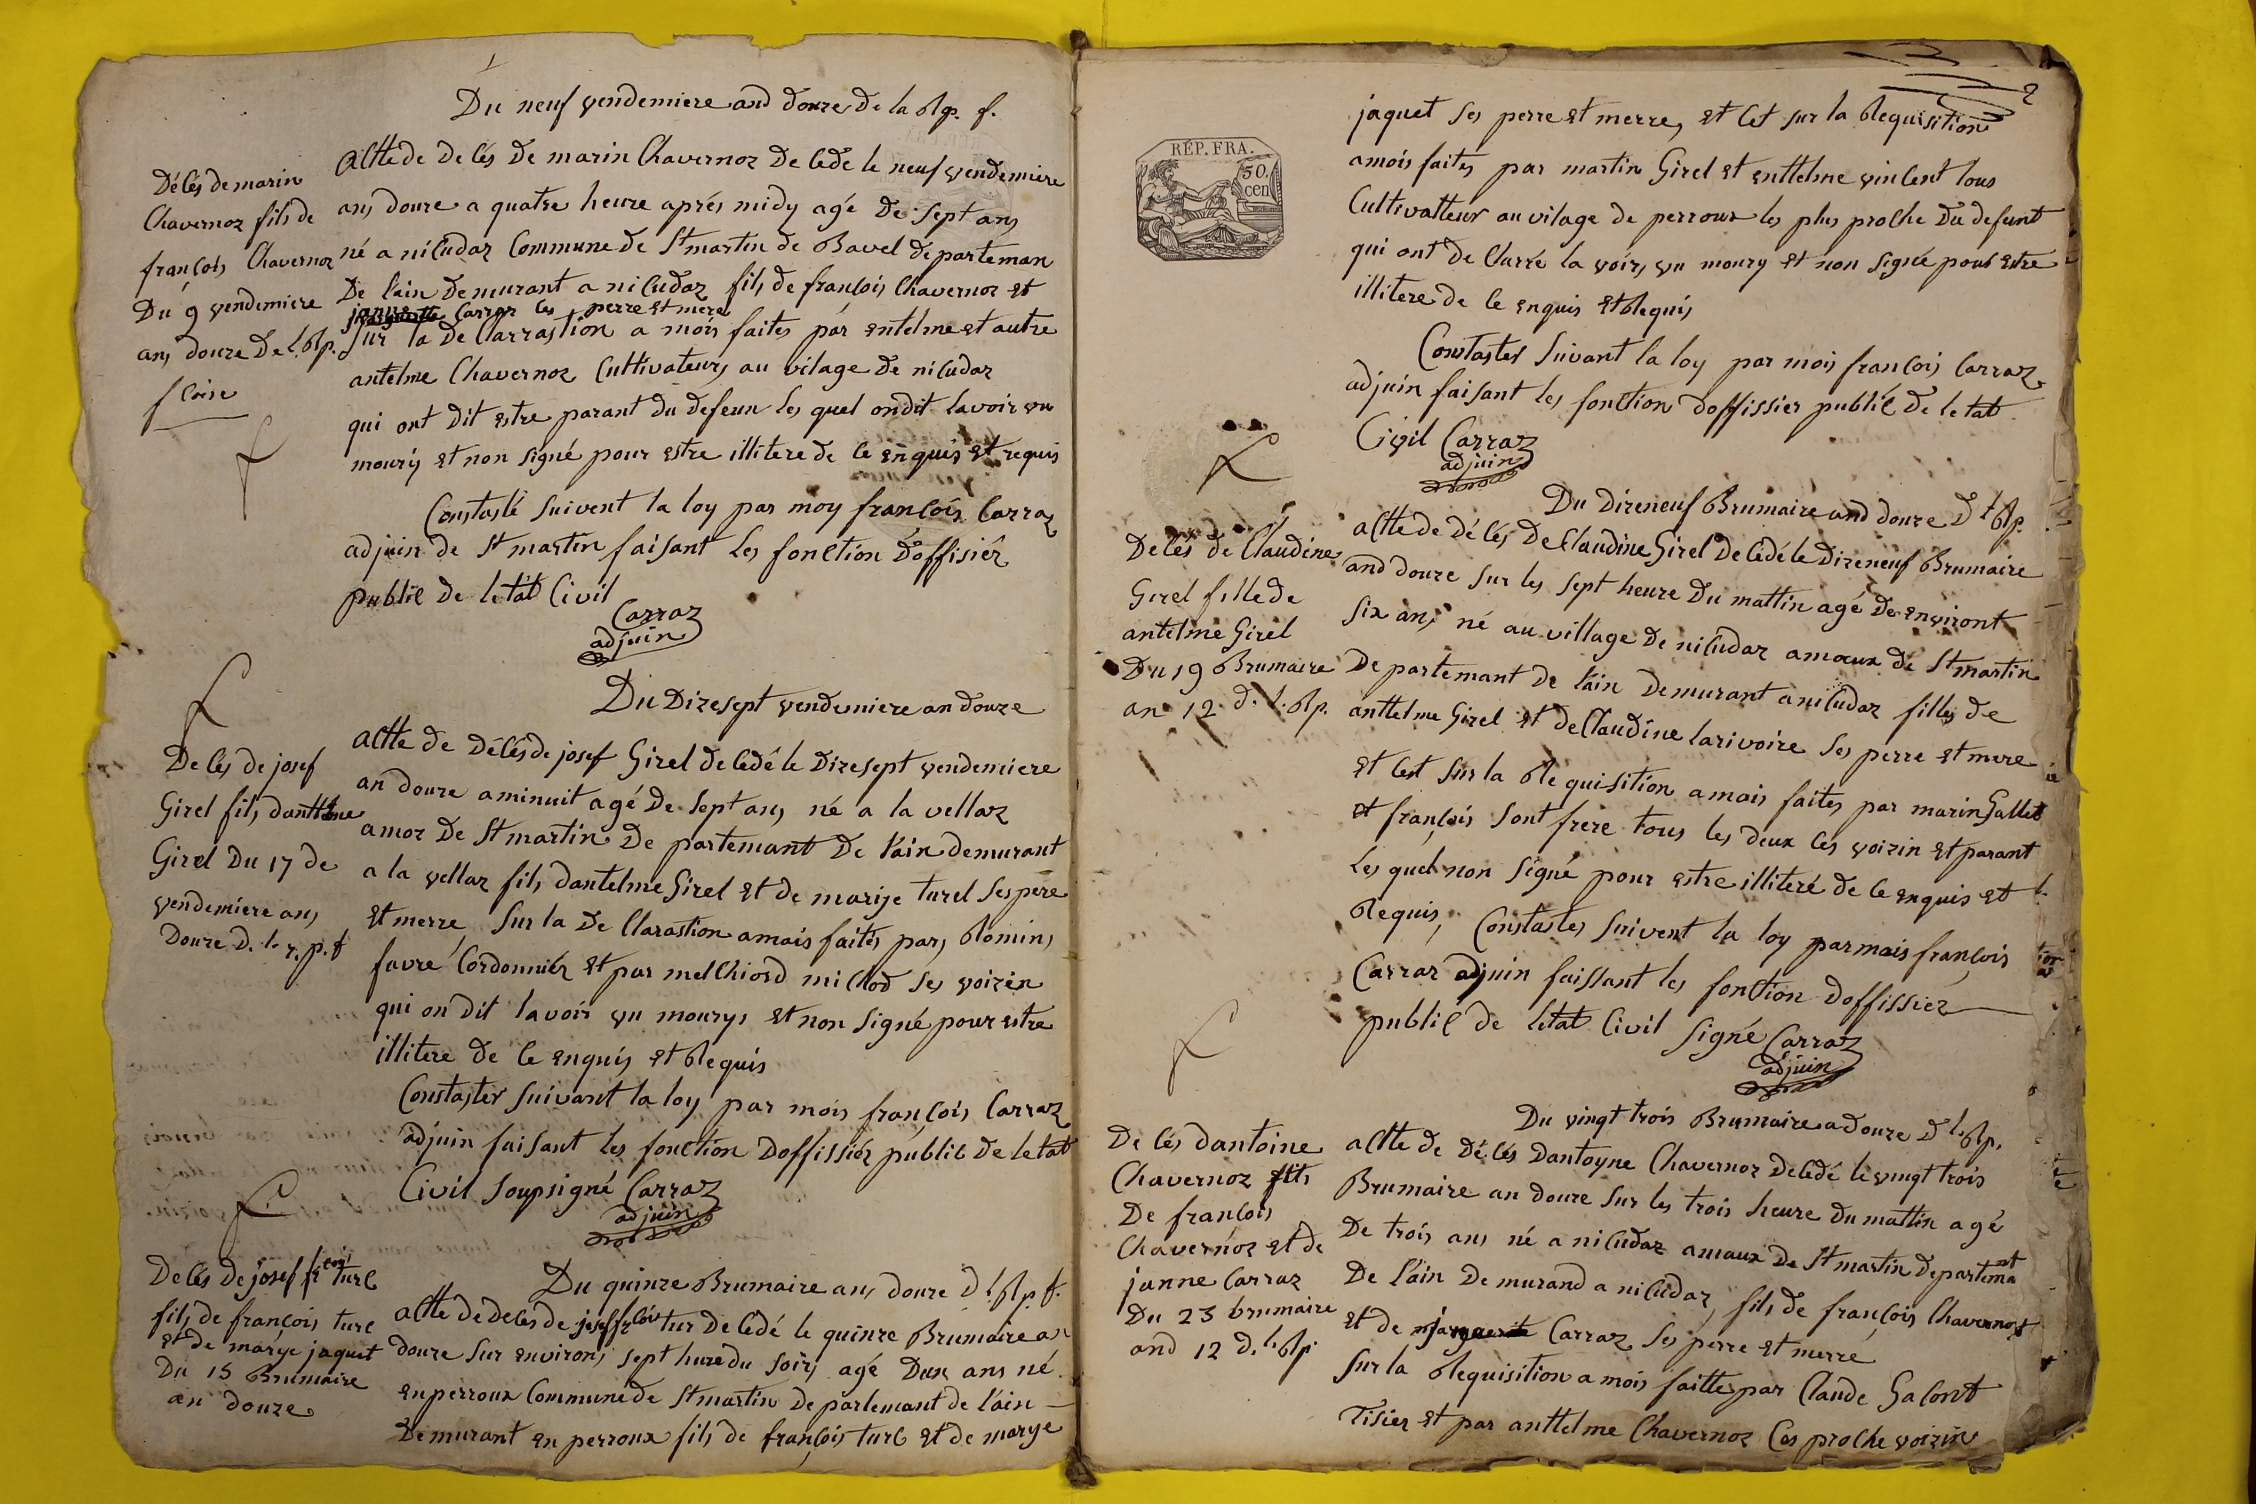 1
Du neuf vendemiere and douze de la Rp. f.
Décés de marin
Chavernoz fils de
françois Chavernoz
Du 9 vendemiere
ans douze De l. Rp.
f coise
Actte de decés De marin Chavernoz Decede le neuf vendemiere
ans douze a quatre heure aprés midy agé De Sept ans
né a nicudaz Commune de St martin de Bavel departeman
De l'ain Demurant a nicudaz fils de françois Chavernoz et
janne Carraz ces perre et mere
Sur la De Clarrastion a mois faites par entelme et autre
antelme Chavernoz Cultivateurs au vilage De nicudaz
qui ont Dit estre parant du defeun les quel ondit lavoir vu
mourÿ et non signé pour estre illitere de ce enquis et requis
Constasté suivent la loy par moy françois Carraz
adjuin de St martin faisant Les fonction D'offisiér
publië de letat Civil
Carraz
adjuin
Du Dixesept vendemiere an douze
De cés de josef
Girel fils danttelme
Girel Du 17 de
vendemiere ans
Douze D. l. r. p. f
actte de Décés de josef Girel decedé le Dixesept vendemiere
an douze aminuit agé De Sept ans né a la vellaz
amoz De St martin De partemant De l'ain demurant
a la vellaz fils dantelme Girel et de marije turel Ses pere
et merre Sur la de Clarastion amais faites par, Romins
favré Cordonniér et par melchiord miclod Ses voizin
qui on Dit lavoir vu mourys et non Signé pour estre
illitere de ce enquis et Requis
Constaster Suivant la loy par mois françois Carraz
adjuin faisant les fonction Doffissiér public De letat
Civil soupsigné Carraz
adjuin
Decés De josef frcois turc
fils de françois turc
et de márÿe jaquet
Du 15 Brumaire
an douze
Du quinze Brumaire ans douze D l. Rp. f.
actte de deces de josef frcoi tur Decedé le quinze Brumaire an
douze sur environs sept hure du soirs agé Dux ans né
en perroux Commune de St martin De partemant de l'ain
Demurant en perroux fils de françois turc et de marye
2
RÉP. FRA.
50.
cen
jaquet ses perre et merre, et cet sur la Requisition
amois faites par martin Girel et anttelme vincent tous
Cultivatteur au vilage de perroux les plus proche Du defunt
qui ont de Clarré la voirs vu moury et non signé pour estre
illitere de ce enquis et Requis
Constaster Suivant la loy par mois françois Carraz
adjuin faisant les fonction doffissier publié De letat
Civil Carraz
adjuin
Du Dixeneuf Brumaire and douze D l Rp.
Decés de Claudine
Girel fille de
antelme Girel
Du 19 Brumaire
an 12. d. l. Rp.
actte de Décés De Claudine Girel Decedé le Dixeneuf Brumaire
and douze sur les sept heure Du mattin agé De environt
six ans né au village de nicudaz amoux de St martin
De partemant de l'ain demurant a nicudaz filles de
anttelme Girel et de Claudine larivoire Ses perre et mere
et Cest sur la Re quisition a mais faites par marin Gallet
et françois Sont frere tous les deux Ces voizin et parant
Les quel non signé pour estre illiteré de ce enquis et
Requis, Constastes suivent la loy par mais françois
Carraz adjuin faissant les fonction doffissiér
publié de letat Civil signé Carraz
adjuin
Du vingt trois Brumaire a douze D l. Rp.
De cés dantoine
Chavernoz fils
De françois
Chavernoz et de
janne Carraz
Du 23 brumaire
and 12 d. l. Rp.
actte de Décés Dantoyne Chavernoz Decedé le vingt trois
Brumaire an douze sur les trois heure du mattin agé
De trois ans né a nicudaz amaux De St martin departemant
De l'ain De murand a nicudaz, fils de françois Chavernoz
et de Carraz Ses perre et merre
Sur la Requisition a mois faittes par Claude Galont
Tisier et par anttelme Chavernoz Ces proche voizin